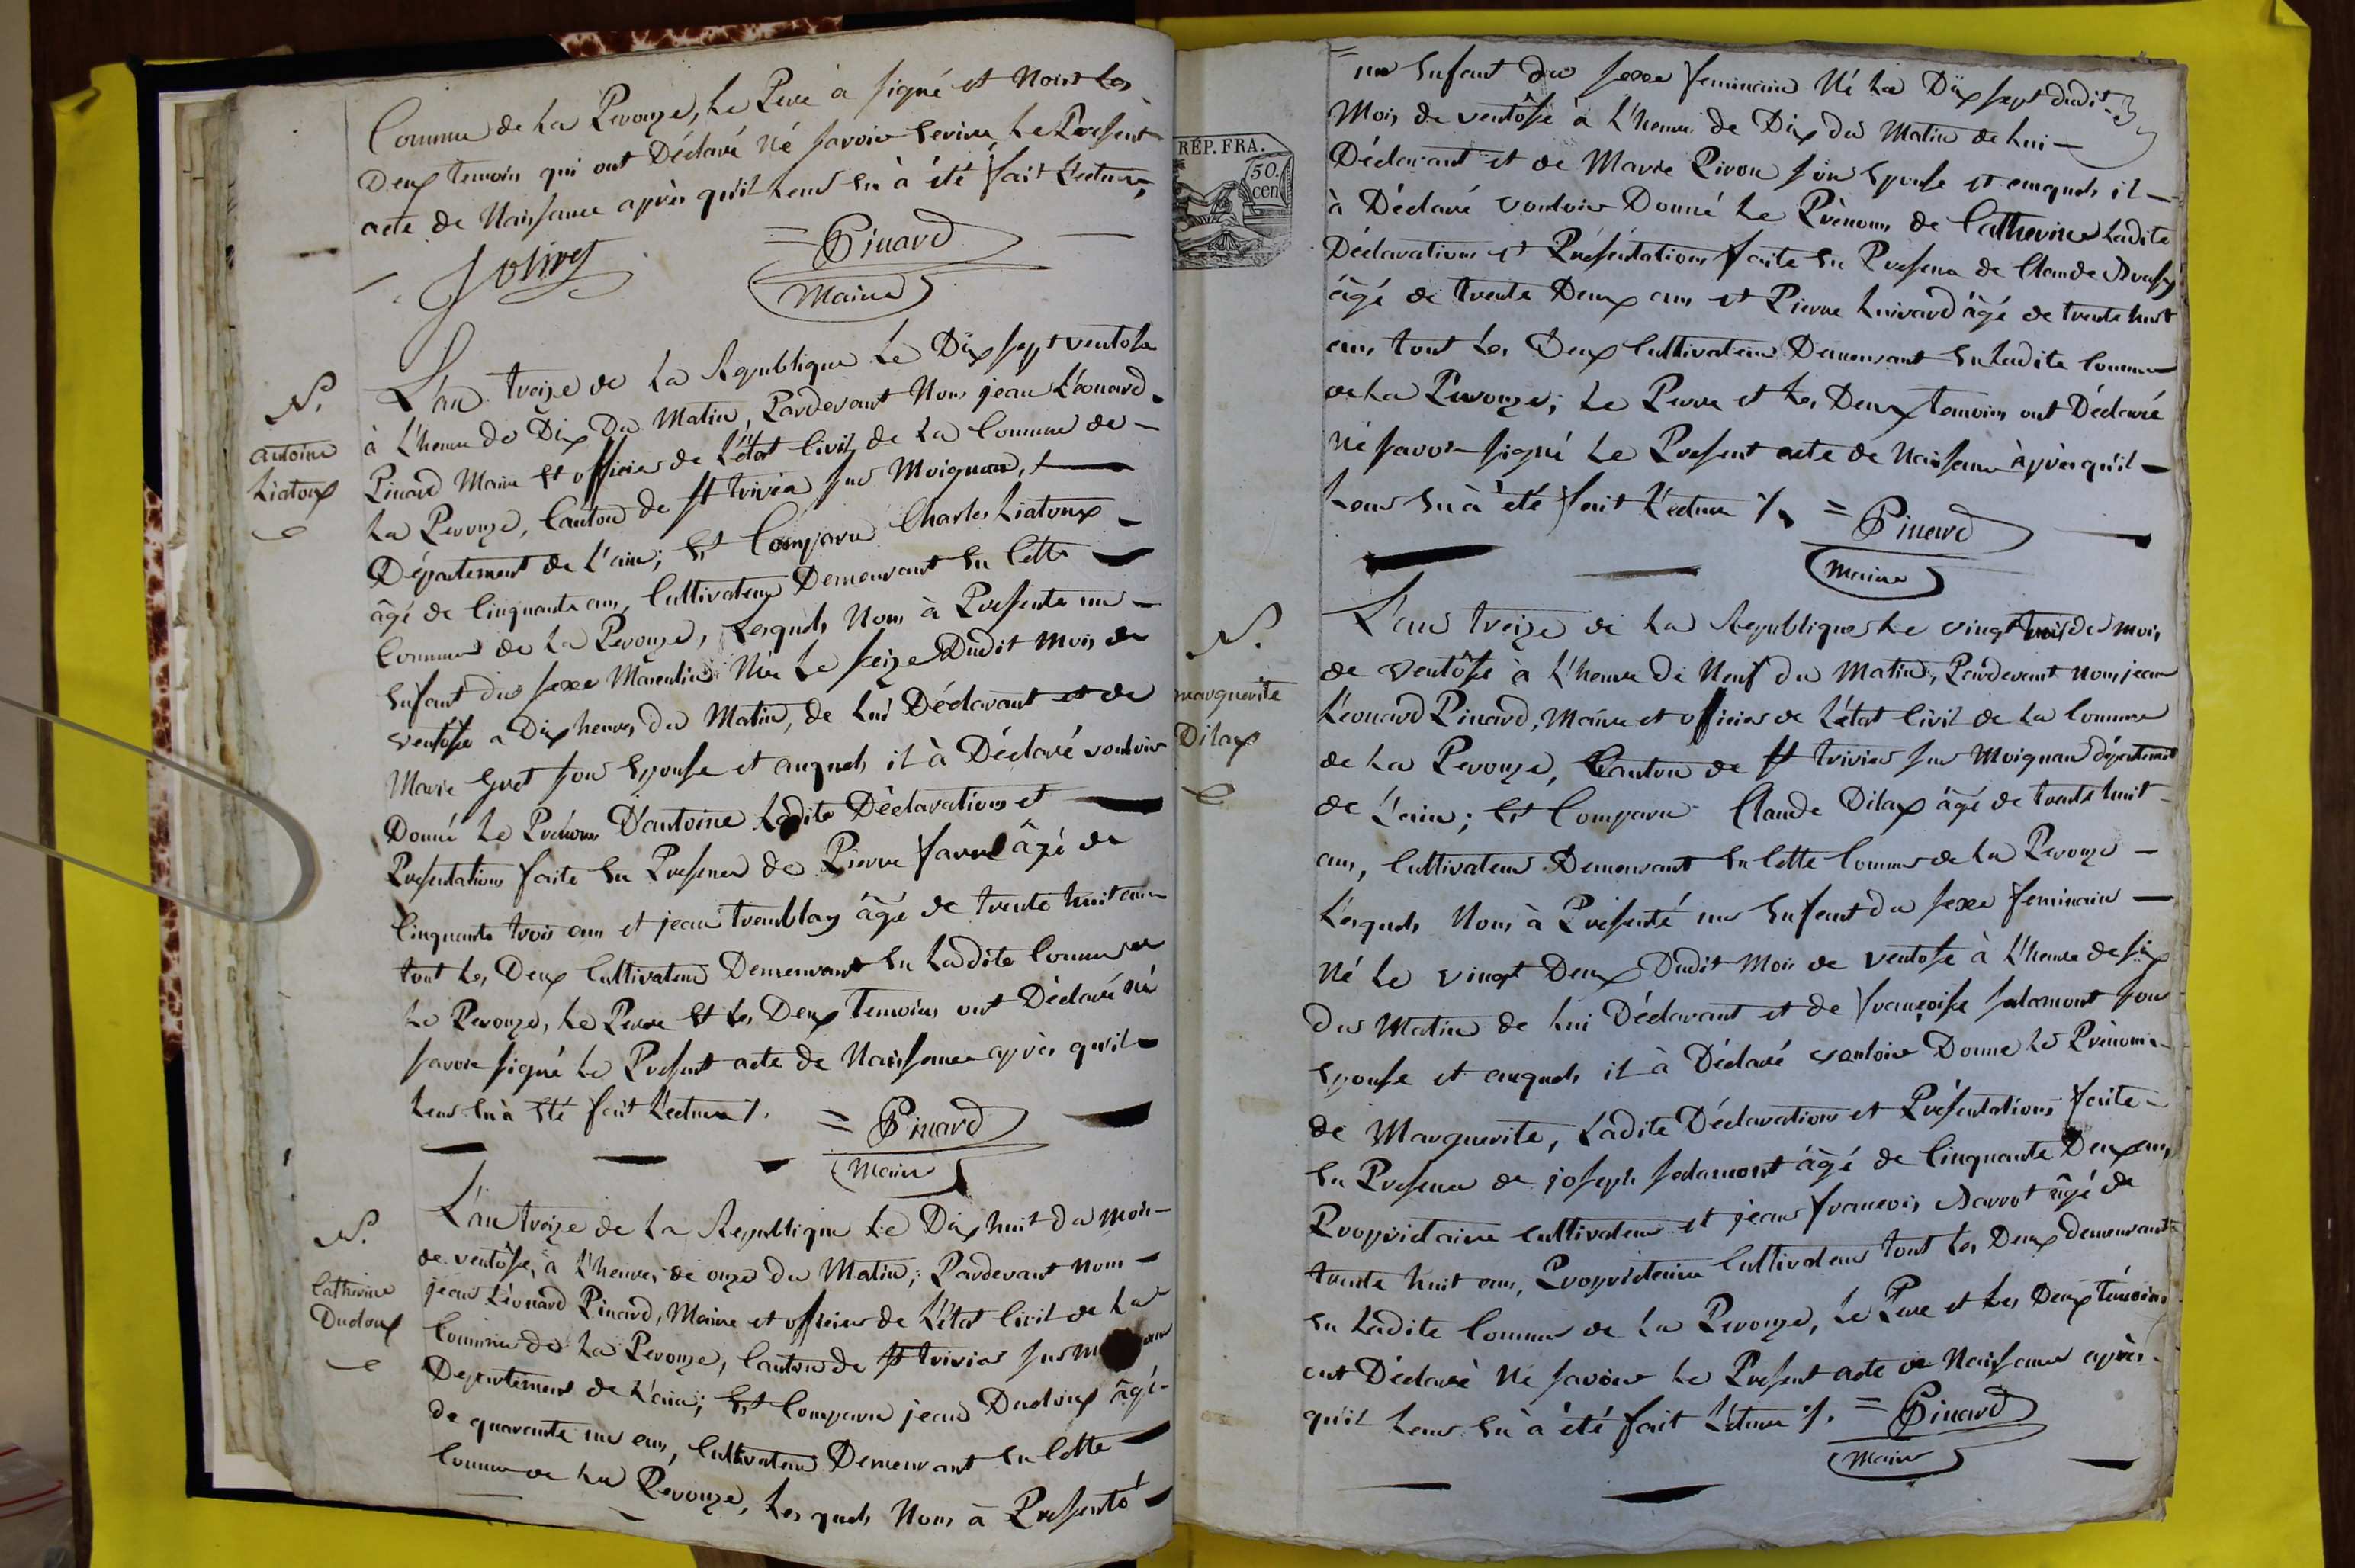 Commune de La Perouze, Le Pere à signé et Non Les
Deux temoin qui ont Déclaré Né savoir Ecrire Le Présent
acte de Naissance après qu'il Leur En à été fait Lecture,
Jolivet
= Pinard
Maire
N.
antoine
Liatoux
L'an treize de La Republique Le Dix sept ventose
à L'heure de Dix Du Matin, Pardevant Nous jean Léonard
Pinard Maire Et officier de L'état Civil de La Commune de
La Perouze, Canton de St trivier sur Moignan,
Département de L'ain; Est Comparu Charles Liatoux
âgé de Cinquante ans, Cultivateur Demeurant En Cette
Commune de La Perouze, Lesquels Nous à Presente un
Enfant du sexe Masculin Née Le seize Dudit Mois de
ventôse a Dix heures du Matin, de Lui Déclarant et de
Marie Gret son Epouse et auquels il à Déclaré vouloir
Donné Le Prénom D'antoine Ladite Déclaration et
Presentation faite En Presence de Pierre favre âgé de
Cinquante trois ans et jean tremblay âgé de trente huit ans
tout Les Deux Cultivateur Demeurant En Ladite Commune
La Perouze, Le Perre Et Les Deux Temoins ont Déclaré né
savoir signé Le Present acte de Naissance après qu'il
Leur En à Eté fait Lecture /.
= Pinard
Maire
N.
Catherine
Dudoux
L'an treize de La Republique Le Dix huit du mois
de ventôse, à L'heure, de onze du Matin; Pardevant nous
jean Léonard Pinard, Maire et officier de L'état Civil de La
Commune de La Perouze, Canton de St trivier sur
Departement de L'ain; Est Comparu jean Dudoux âgé
de quarante un ans, Cultivateur Demeurant En Cette
Commune de La Perouze, Les quels Nous à Présenté
RÉP. FRA.
50.
cen
= un Enfant du sexe feminain Né Le Dix sept dudit
Mois de ventôse à L'heure de Dix du Matin de Lui
Déclarant et de Marie Pivon son Epouse et auquels il
à Déclaré vouloir Donné Le Prénom de Catherine Ladite
Déclaration et Présentation faite En Presence de Claude
âgé de trente Deux ans et Pierre Luivard âgé de trente huit
ans tout Les Deux Cultivateur Demeurant En Ladite Commune
de La Pérouze; Le Perre et Les Deux temoins ont Déclaré
Né savoir signé Le Present acte de Naissance après qu'il
Leur En à été fait Lecture /.
= Pinard
Maire
N.
marguerite
Dilax
L'an treize de La Republique Le vingt trois du mois
de ventôse à L'heure de Neuf du Matin, Pardevant nous jean
Léonard Pinard, Maire et officier de L'état Civil de La Commune
de La Perouze, Canton de St trivier sur Moignan département
de L'ain; Est Comparu Claude Dilax âgé de trente huit
ans, Cultivateur Demeurant En Cette Commune de La Perouze
Lesquels Nous à Présenté un Enfant du sexe feminain
Né Le vingt Deux Dudit Mois de ventose à L'heure de six
du Matin de Lui Déclarant et de françoise salamont son
Epouse et auquels il à Déclaré vouloir Donne Le Prénom
de Marguerite, Ladite Déclaration et Présentation faite
En Presence de joseph salamont âgé de Cinquante Deux ans,
Proprietaire cultivateur et jean françois Narrot âgé de
trente huit ans, Proprietaire Cultivateur tout Les Deux demeurant
En Ladite Commune de La Perouze, Le Pere et Les Deux témoins
ont Déclaré Né savoir Le Present acte de Naissance après
qu'il Leur En à été fait Lecture /.
= Pinard
Maire